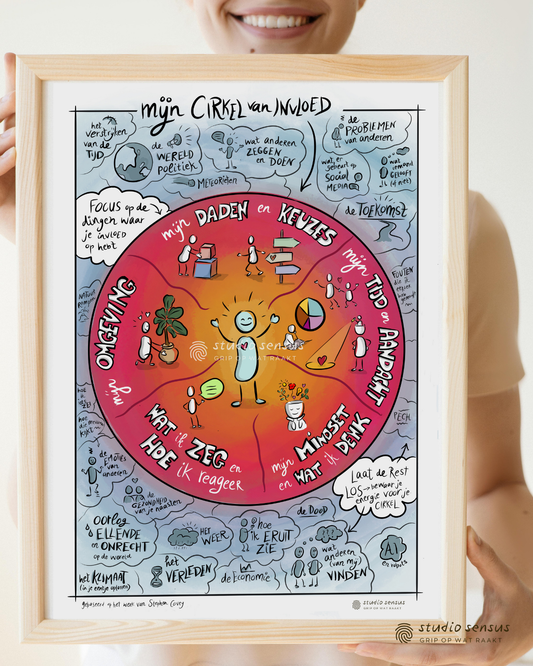 mijn CIRKEL van INVLOED
het
verstrijken
van de
TIJD
de
WERELD
politiek
wat anderen
ZEGGEN
en DOEN
METEORIETEN
de
PROBLEMEN
van anderen
wat er
gebeurt op
SOCIAL
MEDIA
wat
iemand
GELOOFT
(of niet)
de TOEKOMST
FOCUS op de
dingen waar
je invloed
op hebt
mijn DADEN en KEUZES
mijn TIJD en AANDACHT
mijn OMGEVING
WAT ik ZEG en
HOE ik reageer
mijn MINDSET
en WAT ik DENK
FOUTEN
PECH
studio sensus
GRIP OP WAT RAAKT
de EMOTIES
van
anderen
de
GEZONDHEID
van je naasten
Laat de Rest
LOS → bewaar je
energie voor je
CIRKEL
oorlog
ELLENDE
en ONRECHT
op de wereld
HET
WEER
de DOOD
hoe
ik ERUIT
ZIE
wat
anderen
(van mij)
VINDEN
AI
en robots
het KLIMAAT
(in je eentje oplossen)
het
VERLEDEN
de Economie
gebaseerd op het werk van Stephen Covey
studio sensus
studio sensus
GRIP OP WAT RAAKT